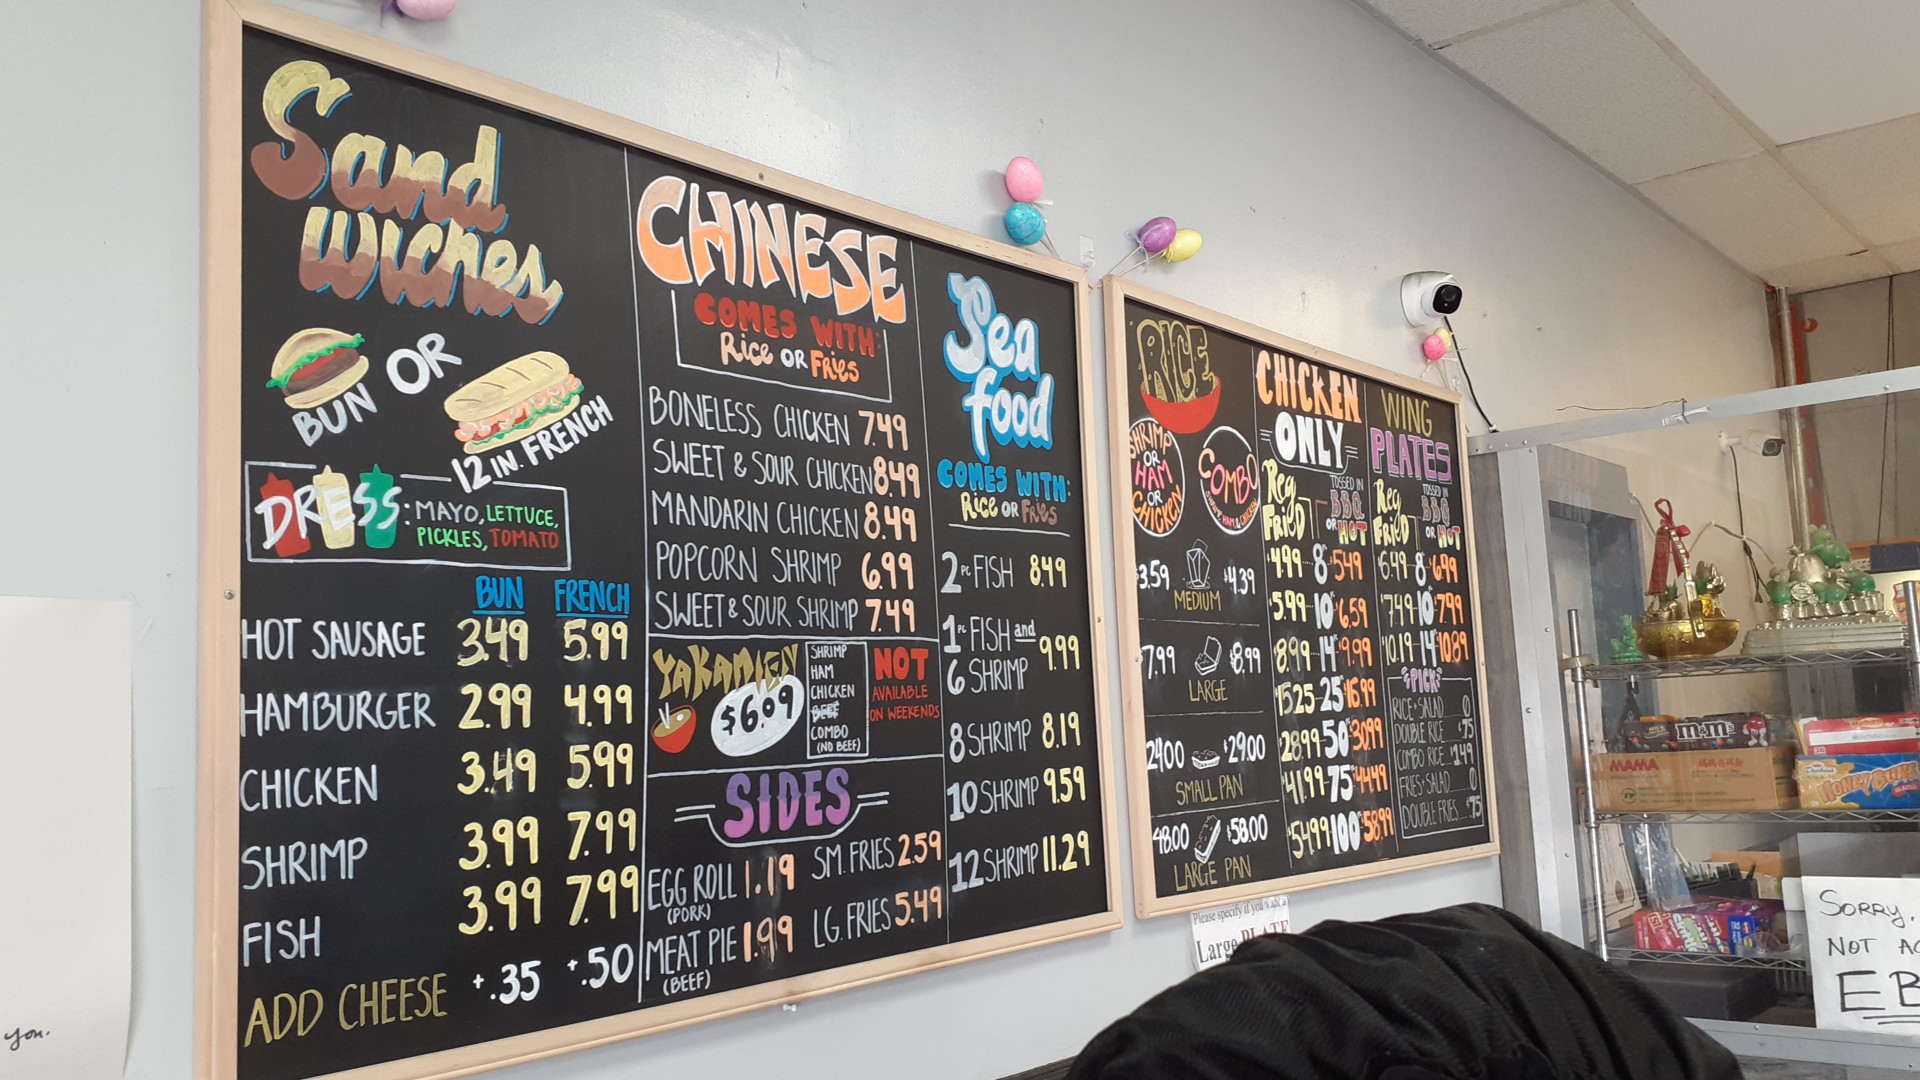 Sand
wiches
BUN OR
12 IN. FRENCH
DRESS: MAYO, LETTUCE,
PICKLES, TOMATO
BUN FRENCH
HOT SAUSAGE 3.49 5.99
HAMBURGER 2.99 4.99
CHICKEN 3.49 5.99
SHRIMP 3.99 7.99
FISH 3.99 7.99
ADD CHEESE +.35 +.50
CHINESE
COMES WITH:
Rice OR Fries
BONELESS CHICKEN 7.49
SWEET & SOUR CHICKEN 8.49
MANDARIN CHICKEN 8.49
POPCORN SHRIMP 6.99
SWEET & SOUR SHRIMP 7.49
YAKAMEIN
$6.09
SHRIMP
HAM
CHICKEN
BEEF
COMBO
(NO BEEF)
NOT
AVAILABLE
ON WEEKENDS
SIDES
EGG ROLL 1.19
(PORK)
MEAT PIE 1.99
(BEEF)
SM. FRIES 2.59
LG. FRIES 5.49
Sea
food
COMES WITH:
Rice OR Fries
2 PC FISH 8.49
1 PC FISH and
6 SHRIMP 9.99
8 SHRIMP 8.19
10 SHRIMP 9.59
12 SHRIMP 11.29
RICE
SHRIMP
OR
HAM
OR
CHICKEN
COMBO
$3.59 $4.39
MEDIUM
$7.99 $8.99
LARGE
24.00 $29.00
SMALL PAN
48.00 $58.00
LARGE PAN
CHICKEN
ONLY
Reg
Fried
TOSSED IN
BBQ
OR HOT
$4.99 8 $5.49
$5.99 10 $6.59
$8.99 14 $9.99
$15.25 25 $16.99
$28.99 50 $30.99
$41.99 75 $44.49
$54.99 100 $58.99
WING
PLATES
Reg
Fried
TOSSED IN
BBQ
OR HOT
$6.49 8 $6.99
$7.49 10 $7.99
$10.19 14 $10.89
PICK
RICE + SALAD 0
DOUBLE RICE $.75
COMBO RICE $1.49
FRIES + SALAD 0
DOUBLE FRIES $.75
Please specify if you want a
Large PLATE
m&m's
MAMA
HONEY BUNS
SORRY,
NOT AC
EB
you.